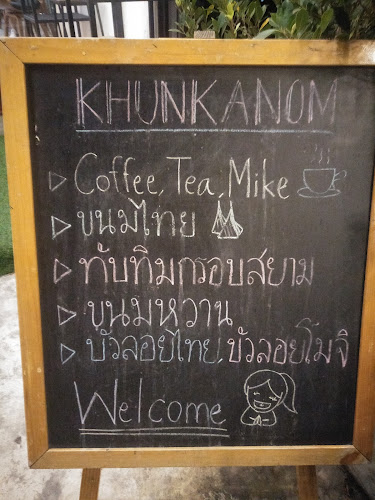 KHUNKANOM
Coffee, Tea, Mike
ขนมไทย
ทับทิมกรอบสยาม
ขนมหวาน
บัวลอยไทย, บัวลอยโมจิ
Welcome